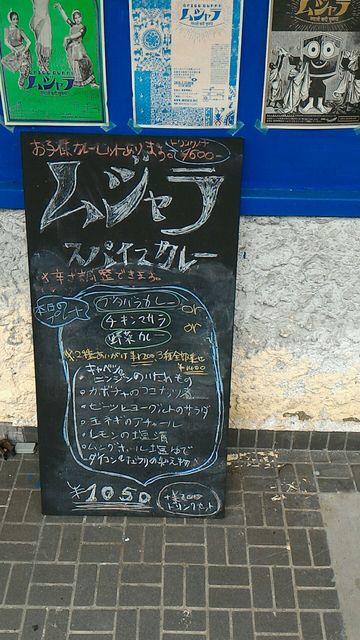 ムジャラ
ムジャラ
お子様カレーセットあります。
ドリンク付
¥600-
ムジャラ
スパイスカレー
*辛さ調整できます。
本日のプレート
ブタバラカレー or
チキンマサラ or
野菜カレー
※2種あいがけ¥1200 3種全部乗せ
¥1400
・キャベツと
ニンジンのいためもの
・カボチャのココナッツ煮
・ビーツとヨーグルトのサラダ
・玉ネギのアチャール
・レモンの塩漬
・ムング
ダイコン
¥1050
+¥200
ドリンクセット